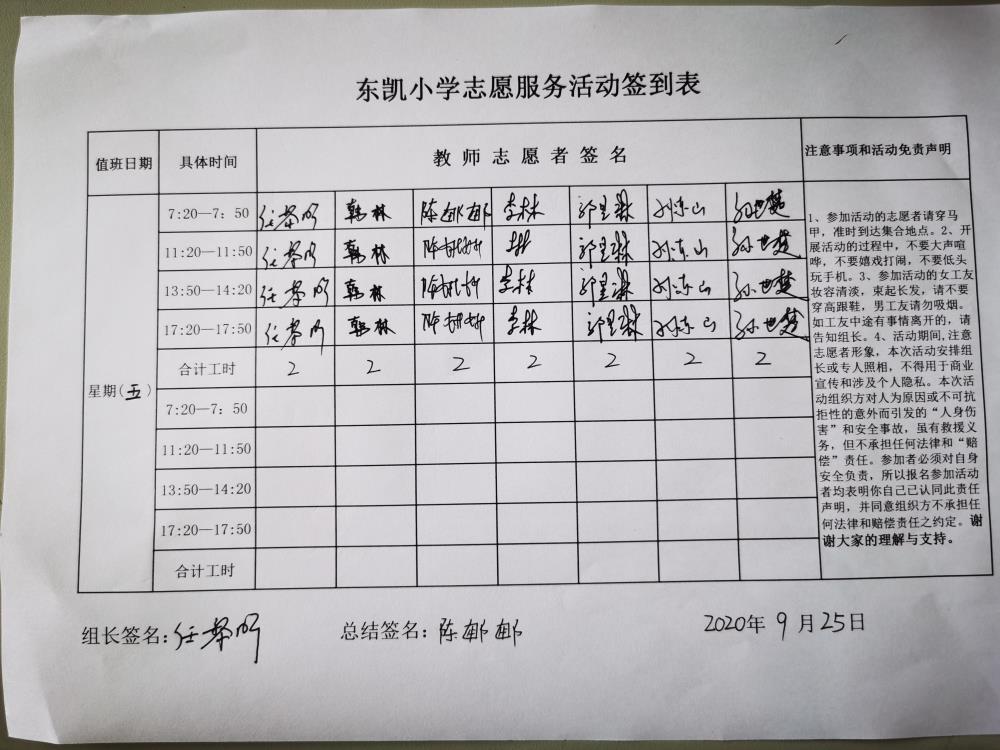 东凯小学志愿服务活动签到表
值班日期 具体时间 教师志愿者签名 注意事项和活动免责声明
7:20—7:50 韩林 陈邮邮 李林 孙世楚
11:20—11:50 韩林 孙世楚
13:50—14:20 韩林 李林 孙世楚
17:20—17:50 韩林 李林 孙世楚
合计工时 2 2 2 2 2 2 2
星期(五)
7:20—7:50
11:20—11:50
13:50—14:20
17:20—17:50
合计工时
1、参加活动的志愿者请穿马
甲,准时到达集合地点。2、开
展活动的过程中,不要大声喧
哗,不要嬉戏打闹,不要低头
玩手机。3、参加活动的女工友
妆容清淡,束起长发,请不要
穿高跟鞋,男工友请勿吸烟。
如工友中途有事情离开的,请
告知组长。4、活动期间,注意
志愿者形象,本次活动安排组
长或专人照相,不得用于商业
宣传和涉及个人隐私。本次活
动组织方对人为原因或不可抗
拒性的意外而引发的“人身伤
害”和安全事故,虽有救援义
务,但不承担任何法律和“赔
偿”责任。参加者必须对自身
安全负责,所以报名参加活动
者均表明你自己已认同此责任
声明,并同意组织方不承担任
何法律和赔偿责任之约定。谢
谢大家的理解与支持。
组长签名: 总结签名:陈邮邮 2020年9月25日